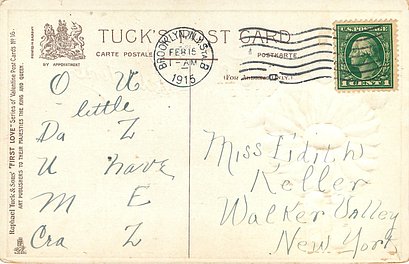 TUCK'S POST CARD
CARTE POSTALE
POSTKARTE.
BY APPOINTMENT
(FOR ADDRESS ONLY.)
BROOKLYN, N.Y. STA. B
FEB 15
1 - AM
1915
U.S. POSTAGE
1 CENT 1
O U
little
Da Z
U have
M E
Cra Z
Miss Edith
Keller
Walker Valley
New York
Raphael Tuck & Sons' "FIRST LOVE" Series of Valentine Post Cards No 16.
ART PUBLISHERS TO THEIR MAJESTIES THE KING AND QUEEN.